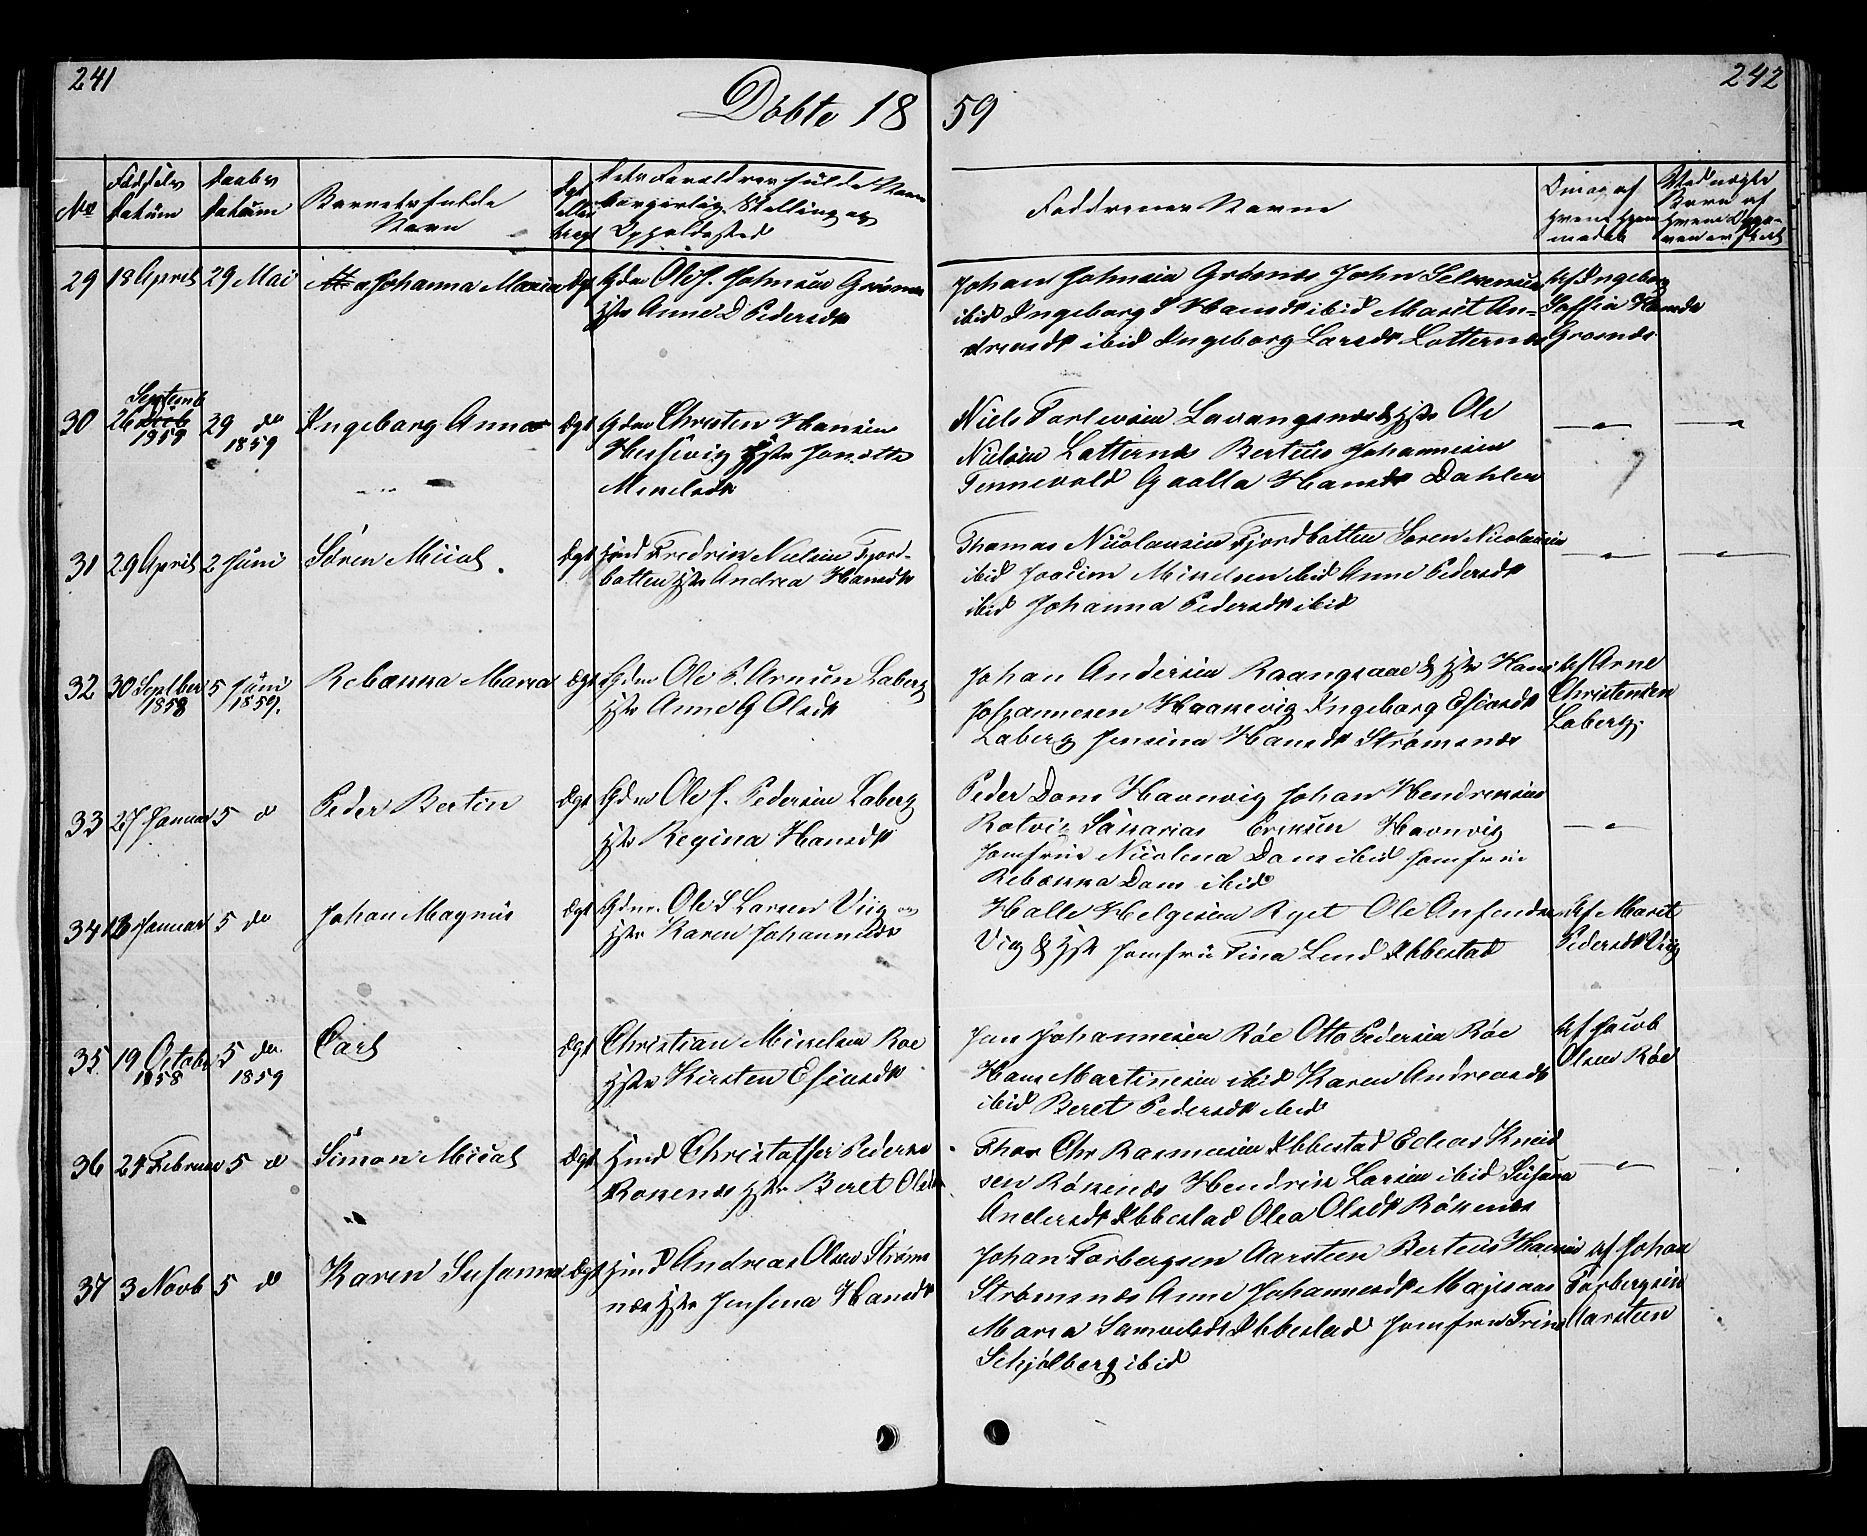 241
242
Döbte 18 59
No
Fødsels Datum
Daabs Datum
Barnets fulde Navn
Ægt eller uægt
Dets Forældres fulde Navn borgerlig Stilling og Opholdssted
Faddrenes Navne
29 18 April 29 Mai Johanna Maria Ægt Gdm Ole J. Johnsen Grøsnes
Hstr Anne D Pedersdt
Johan Johnsen Grøsnes John
ibid Ingeborg S Hansdt ibid Marit An-
dreasdt ibid Ingeborg Larsdt Lotternes
Af Ingeborg
Soffia Hansdt
Grosnes
30 26 Septemb 1859 29 do 1859 Ingeborg Anna Ægt Gdm Christen Hansen
Hstr Jonette
Mikelsdt
Niels Torlevsen Lavangsnes & Hstr Ole
Nielsen Lotternes Berteus Johannesen
Tennevold Hansdt Dahlen
31 29 April 2 Juni Sören Mical Ægt Hmd Fredrik Nielsen Fjord-
botten Hstr Andrea Hansdt
Thomas Nicolaisen Fjordbotten Soren Nicolaisen
ibid Joacim Mikelsen ibid Anne Pedersdt
ibid Johanna Pedersdt ibid
32 30 Septber 1858 5 Juni 1859. Rebanna Maria Ægt Gdm Ole P. Arnsen Laberg
Hstr Anne G Olsdt
Johan Andersen Raangsaae & Hstr Hans
Johannesen Haakevig Ingeborg Esiasdt
Laberg Jensina Hansdt Strømsnes
Af Arne
Christensen
Laberg.
33 27 Januar 5 d Peder Bertin Ægt Gdm Ole J. Pedersen Laberg
Hstr Regina Hansdt
Peder Dons Havnvig Johan Hendriksen
Rotvig Sakarias Eriksen Havnvig
Jomfrue Nicolina Dons ibid Jomfrue
Rebekka Dons ibid
34 16 Januar 5 do Johan Magnus Ægt Gdm. Ole S Larsen Viig og
Hstr Karen Johannesdt
Halle Helgesen Ryet Ole
Viig & Hstr Jomfru Tina Lund Ibbestad
Af Marit
Pedersdt Viig
35. 19 Octobr 1858 5 do 1859 Carl Ægt Christian Mikelsen Roe
Hstr Kirsten Esiasdt
Jens Johannesen Röe Otto Pedersen Röe
Hans Martinesen ibid Karen Andreasdt
ibid Beret Pedersdt ibid
Af Jacob
Olsen Röe
36 24 Februar 5 d Simon Mical Ægt Hmd Christoffer Pedersen
Rokenes Hstr Beret Olsdt
Thor Chr Rasmusen Ibbestad Edeas Kneid
sen Rökenes Hendrik Larsen ibid Susana
Andersdt Ibbestad Olea Olsdt Rökenes
37 3 Novb 5 d Karen Susanna Ægt Hmd Andreas Olsen Strøms
nes Hstr Jensena Hansdt
Johan Torbergsen Aarsteen Berteus Hansen
Strömsnes Anne Johannesdt
Maria Samuelsdt Ibbestad Jomfru Trine
Schjölberg ibid
Af Johan
Torbergsen
Aarsteen